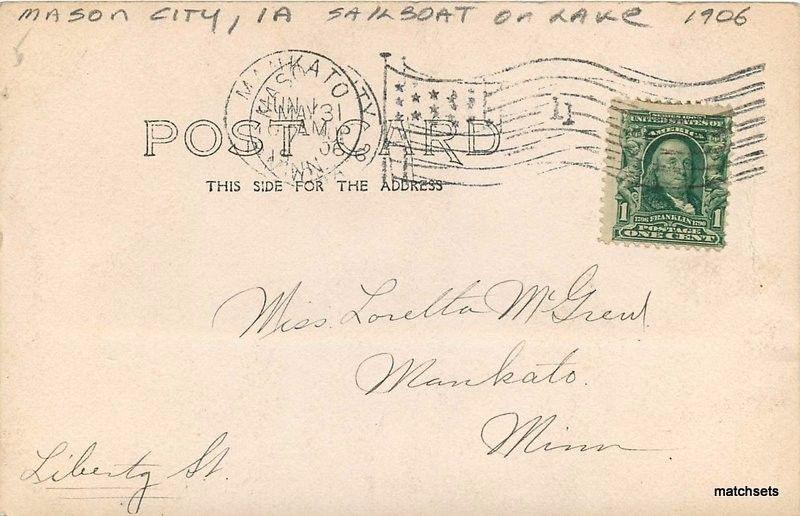 MASON CITY, IA SAILBOAT on LAKE 1906
MANKATO
MINN
MAY 31
AM
POST CARD
THIS SIDE FOR THE ADDRESS
11
SERIES 1902
UNITED STATES OF
AMERICA
1 1706 FRANKLIN 1790 1
POSTAGE
ONE CENT
Miss. Loretta
Mankato.
Minn
Liberty St.
matchsets